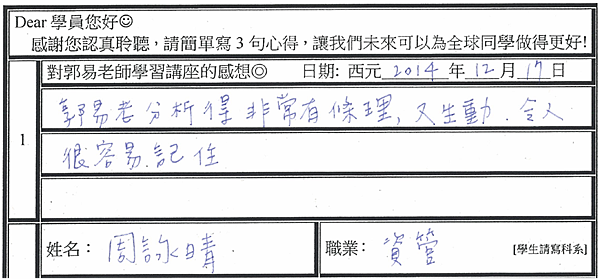 Dear 學員您好☺
感謝您認真聆聽，請簡單寫 3 句心得，讓我們未來可以為全球同學做得更好!
對郭易老師學習講座的感想◎ 日期: 西元 2014 年 12 月 17 日
1
郭易老分析得非常有條理，又生動．令人
很容易記住
姓名： 周詢晴 職業： 資管 [學生請寫科系]